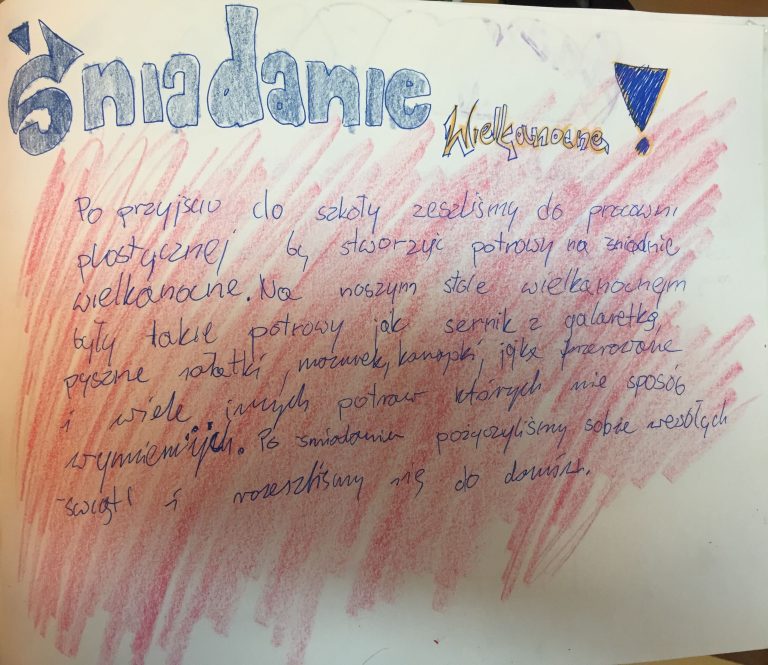 Śniadanie Wielkanocne!
Po przyjściu do szkoły zeszliśmy do pracowni
plastycznej by stworzyć potrawy na śniadnie
wielkanocne. Na naszym stole wielkanocnym
były takie potrawy jak sernik z galaretką,
pyszne sałatki, mazurek, kanapki, jajka
i wiele innych potraw których nie sposób
Po śniadaniu pożyczyliśmy sobie wesołych
świąt i rozeszliśmy się do domów.